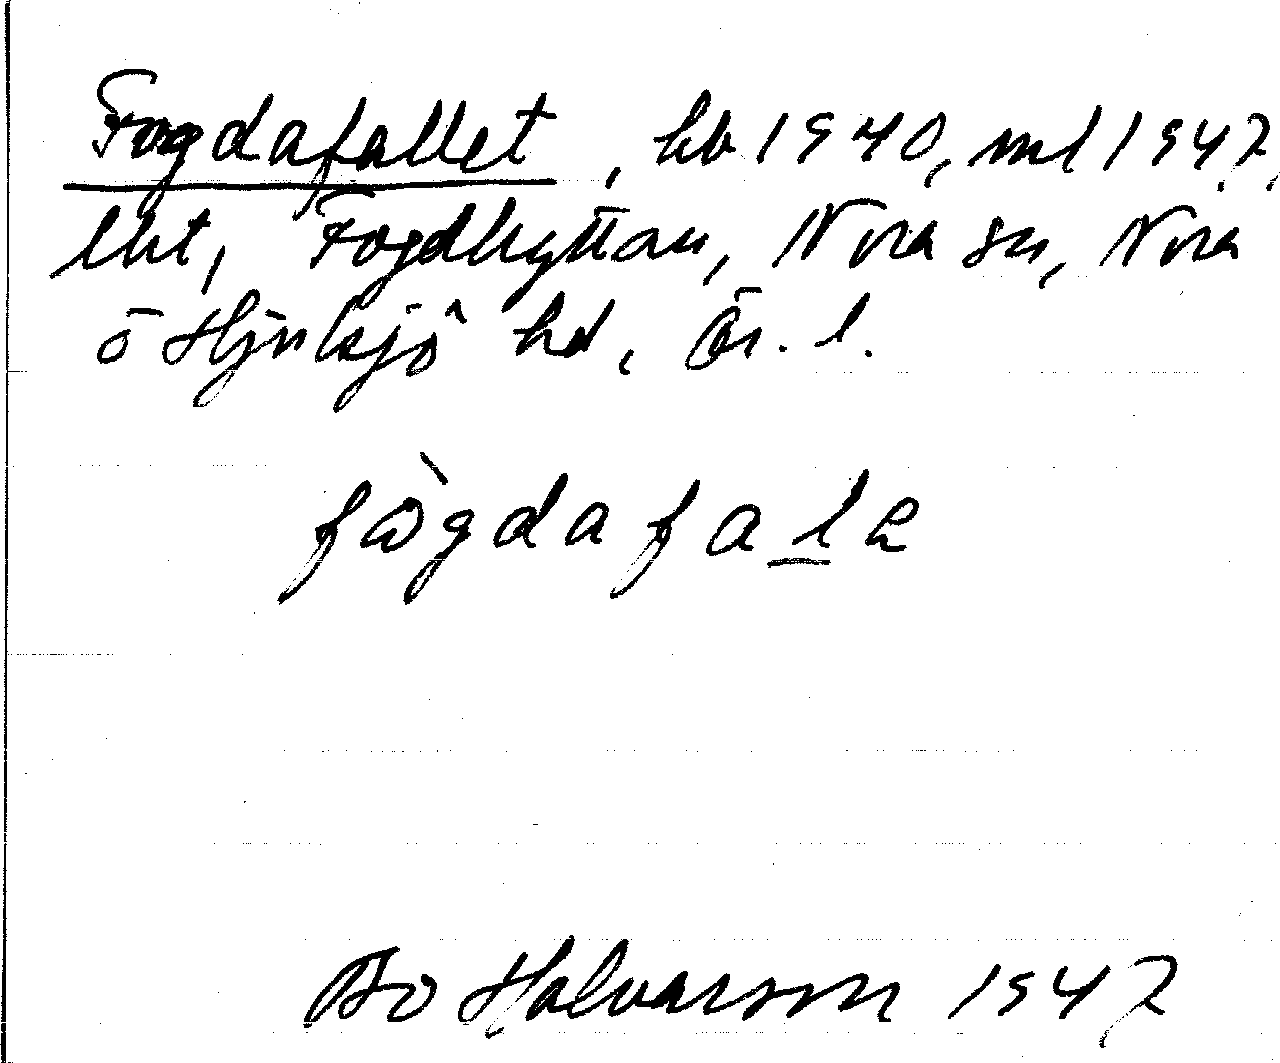 Fogdafallet, hb 1940, ml 1947,
lht, Fogdhyttan, Nora sn, Nora
o Hjulsjö hd, Ör. l.
fò̀gdafale
Bo Halvarson 1947